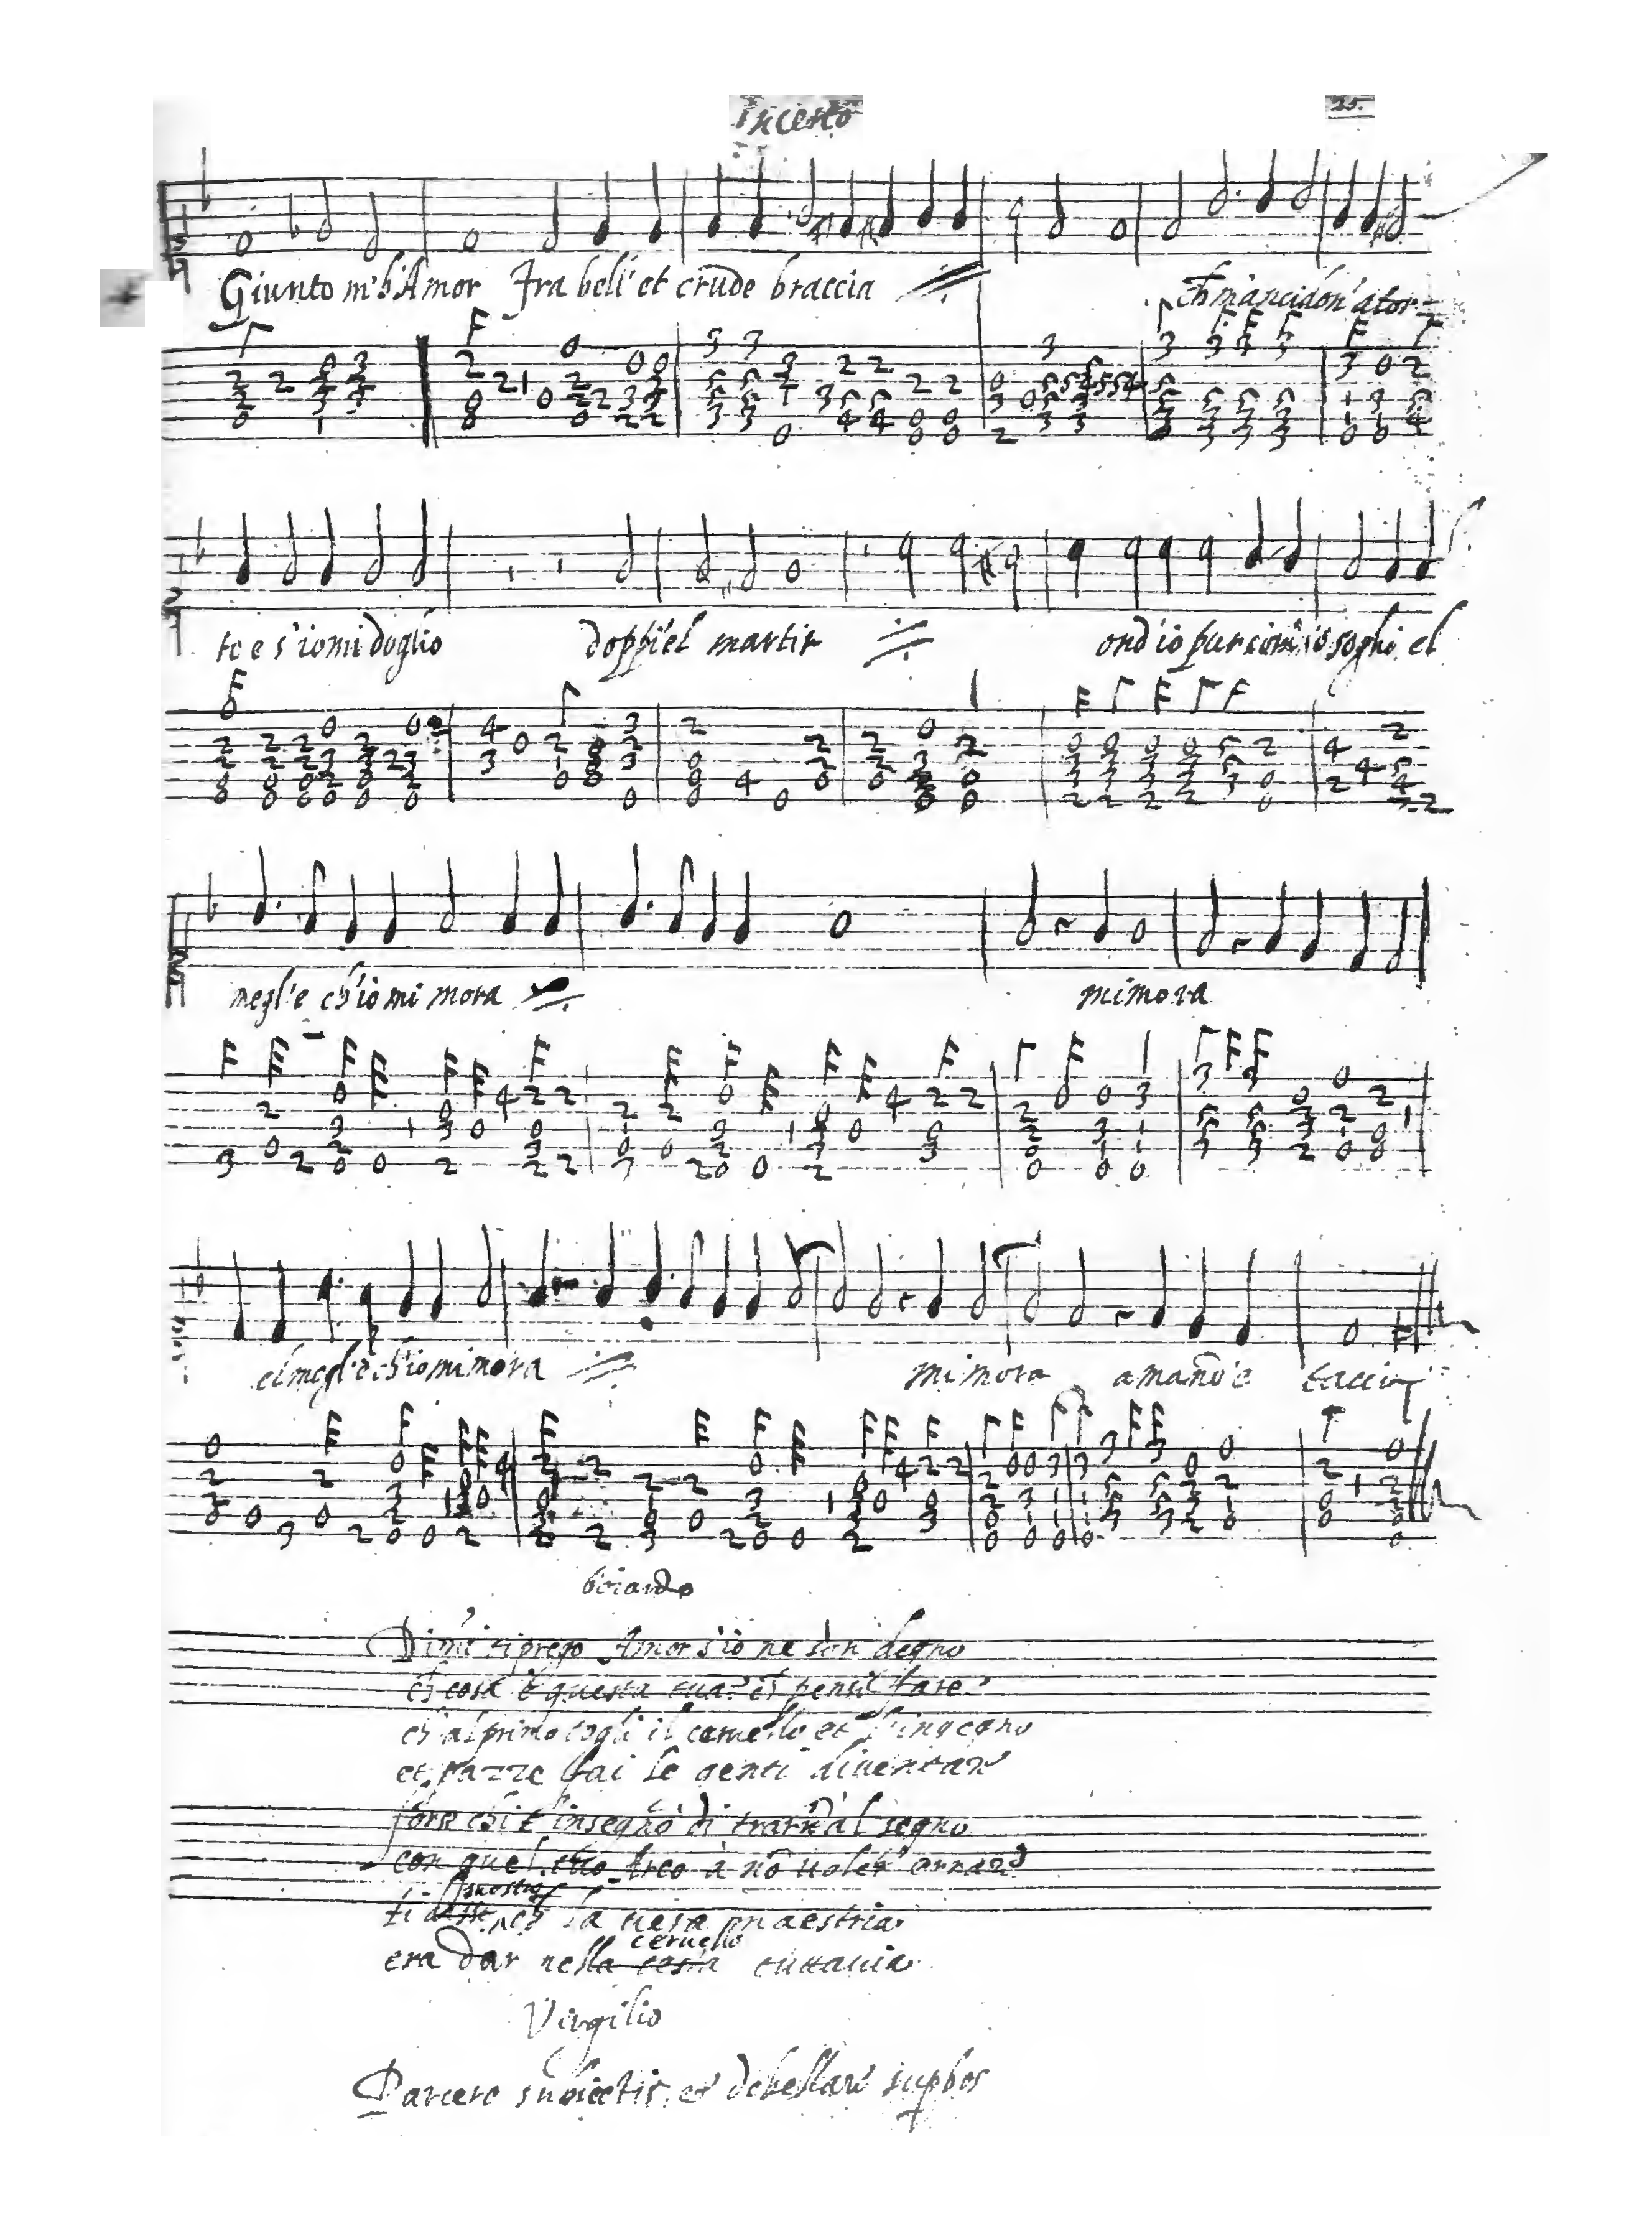 Incerto
25.
Giunto m'h'Amor fra bell' et crude braccia
ch m'ancidon' a tor
to e s'io mi doglio doppi'el martir ond'io pur
el
megl'e ch'io mi mora mi mora
el megl'e ch'io mi mora mi mora amand'e
boiardo
Dimi ti prego Amor s'io ne son degno
ch cosa è questa tua? ch pensi fare?
ch' al primo togli il cervello et l'ingegno
et pazze fai le genti diventar
forse chi t'insegnò di trarr' al segno
con quel tuo Arco à nõ voler errare
ti mostrò ch la vera maestria
era dar nella testa cervello tuttavia
Virgilio
Parcere subiectis et debellare supbos